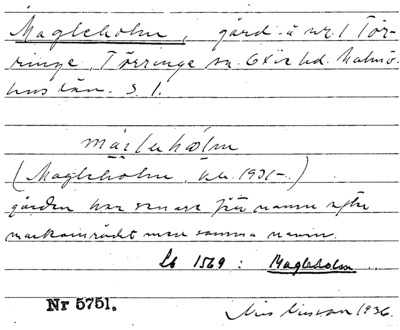 Magleholm, gård å nr 1 Tör-
ringe, Törringe sn. Oxie hd. Malmö-
hus län. S. 1.
(Magleholm, 1931-.)
gården har senare fått namn efter
markområdet med samma namn.
Lb 1569: Magleholm
Nr 5751.
Nils Nilsson 1936.